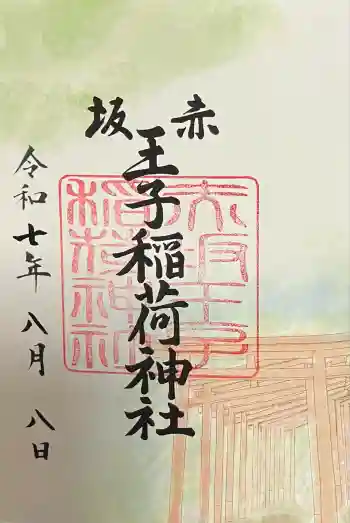 赤坂
王子稲荷神社
令和七年 八月 八日
赤坂王子
稲荷神社